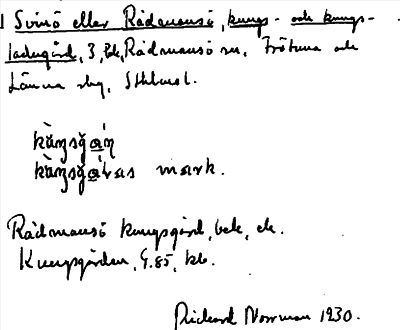 Svinö eller Rådmansö, kungs- och kungs-
ladugård, 3, bk, Rådmansö sn, Frötuna och
Länna skg, Sthlms l.
mark.
Rådmansö kungsgård, bek, ek.
Kungsgården, G.85, kb.
Rickard Norrman 1930.